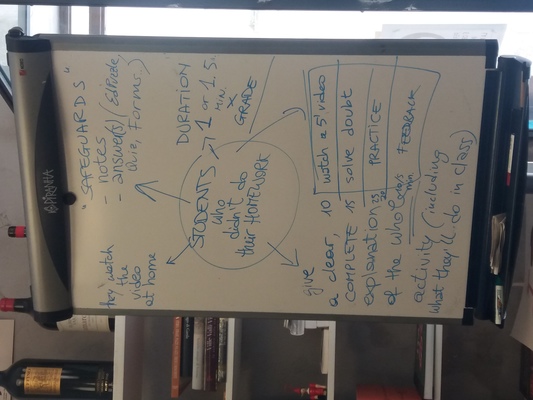 "SAFEGUARDS"
- notes
- answer(s) (EdPuzzle,
Quiz, Forms..)
DURATION
1 or 1,5
MIN.
X
GRADE
they watch
the
video
at home
STUDENTS
who
didn't do
their HOMEWORK
give
a clear,
COMPLETE
explanation
of the whole
activity (including
what they'll do in class)
10 watch a 5' video
15 solve doubt
PRACTICE
FEEDBACK
min